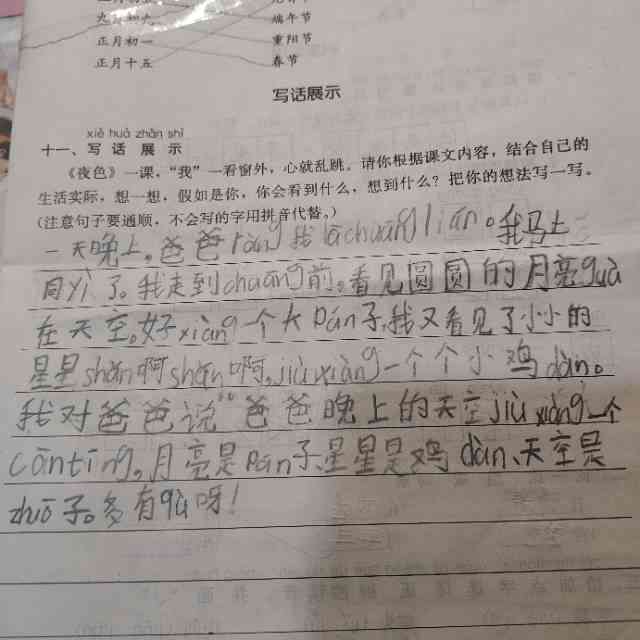 九月初九 端午节
正月初一 重阳节
正月十五 春节
写话展示
xiě huà zhǎn shì
十一、写 话 展 示
《夜色》一课，“我”一看窗外，心就乱跳。请你根据课文内容，结合自己的
生活实际，想一想，假如是你，你会看到什么，想到什么？把你的想法写一写。
（注意句子要通顺，不会写的字用拼音代替。）
一天晚上。爸爸ràng我lāchuānglián。我马上
同yì了。我走到chuāng前。看见圆圆的月亮guà
在天空。好xiàng一个大pán子，我又看见了小小的
星星shǎn啊shǎn啊，jiùxiàng一个个小鸡dàn。
我对爸爸说“爸爸晚上的天空jiùxiàng一个
cāntīng。月亮是pán子、星星是鸡dàn、天空是
zhuō子。多有qù呀！